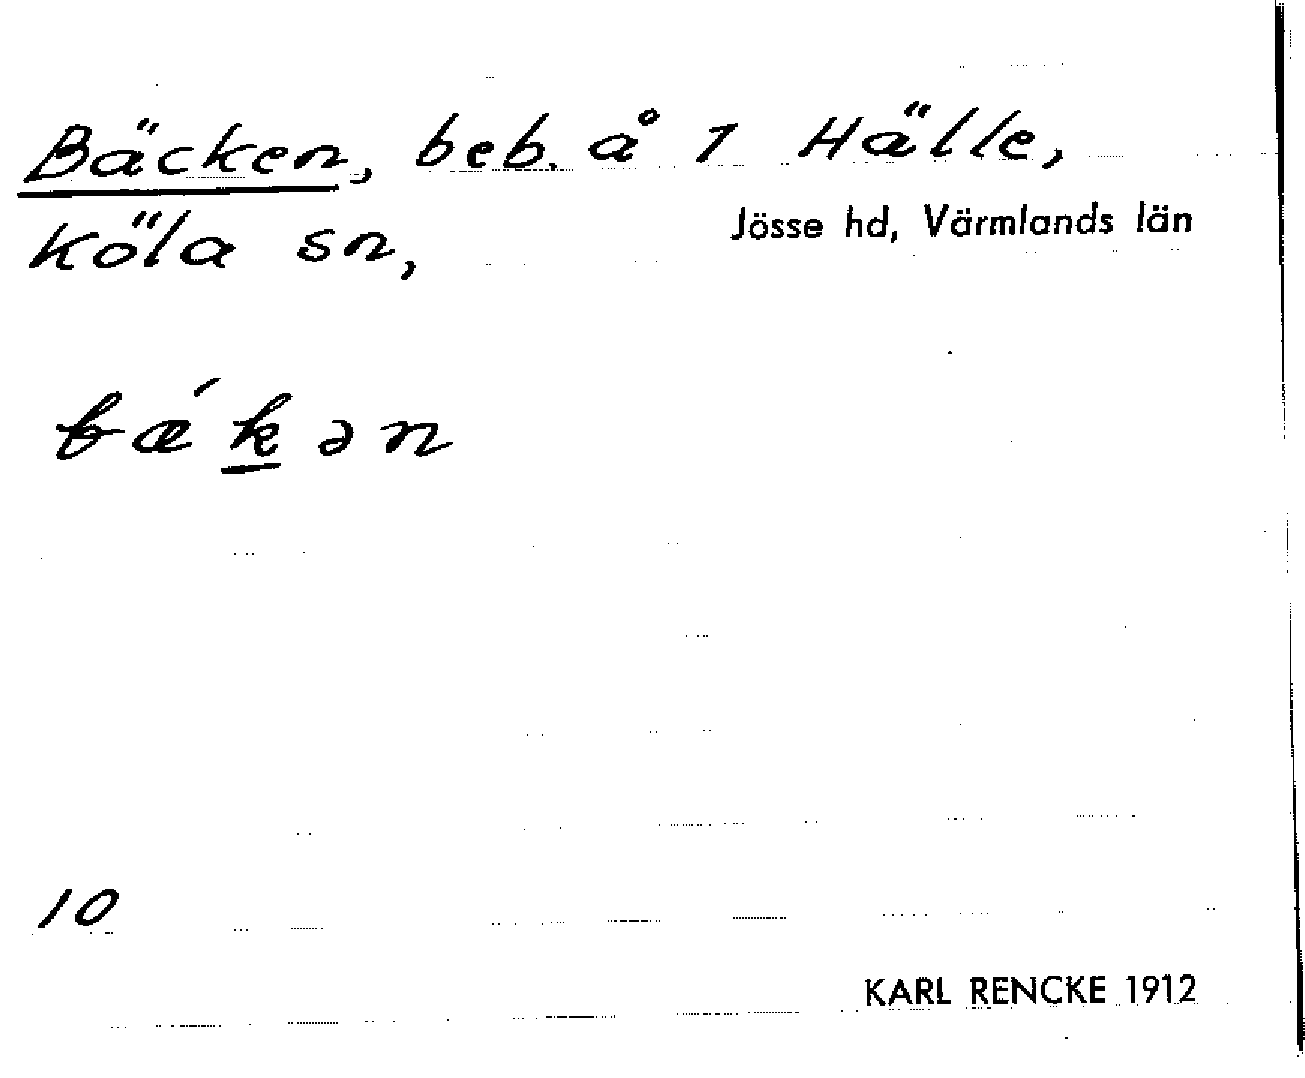 Bäcken, beb. å 1 Hälle,
Köla sn, Jösse hd, Värmlands län
bǽkən
10
KARL RENCKE 1912